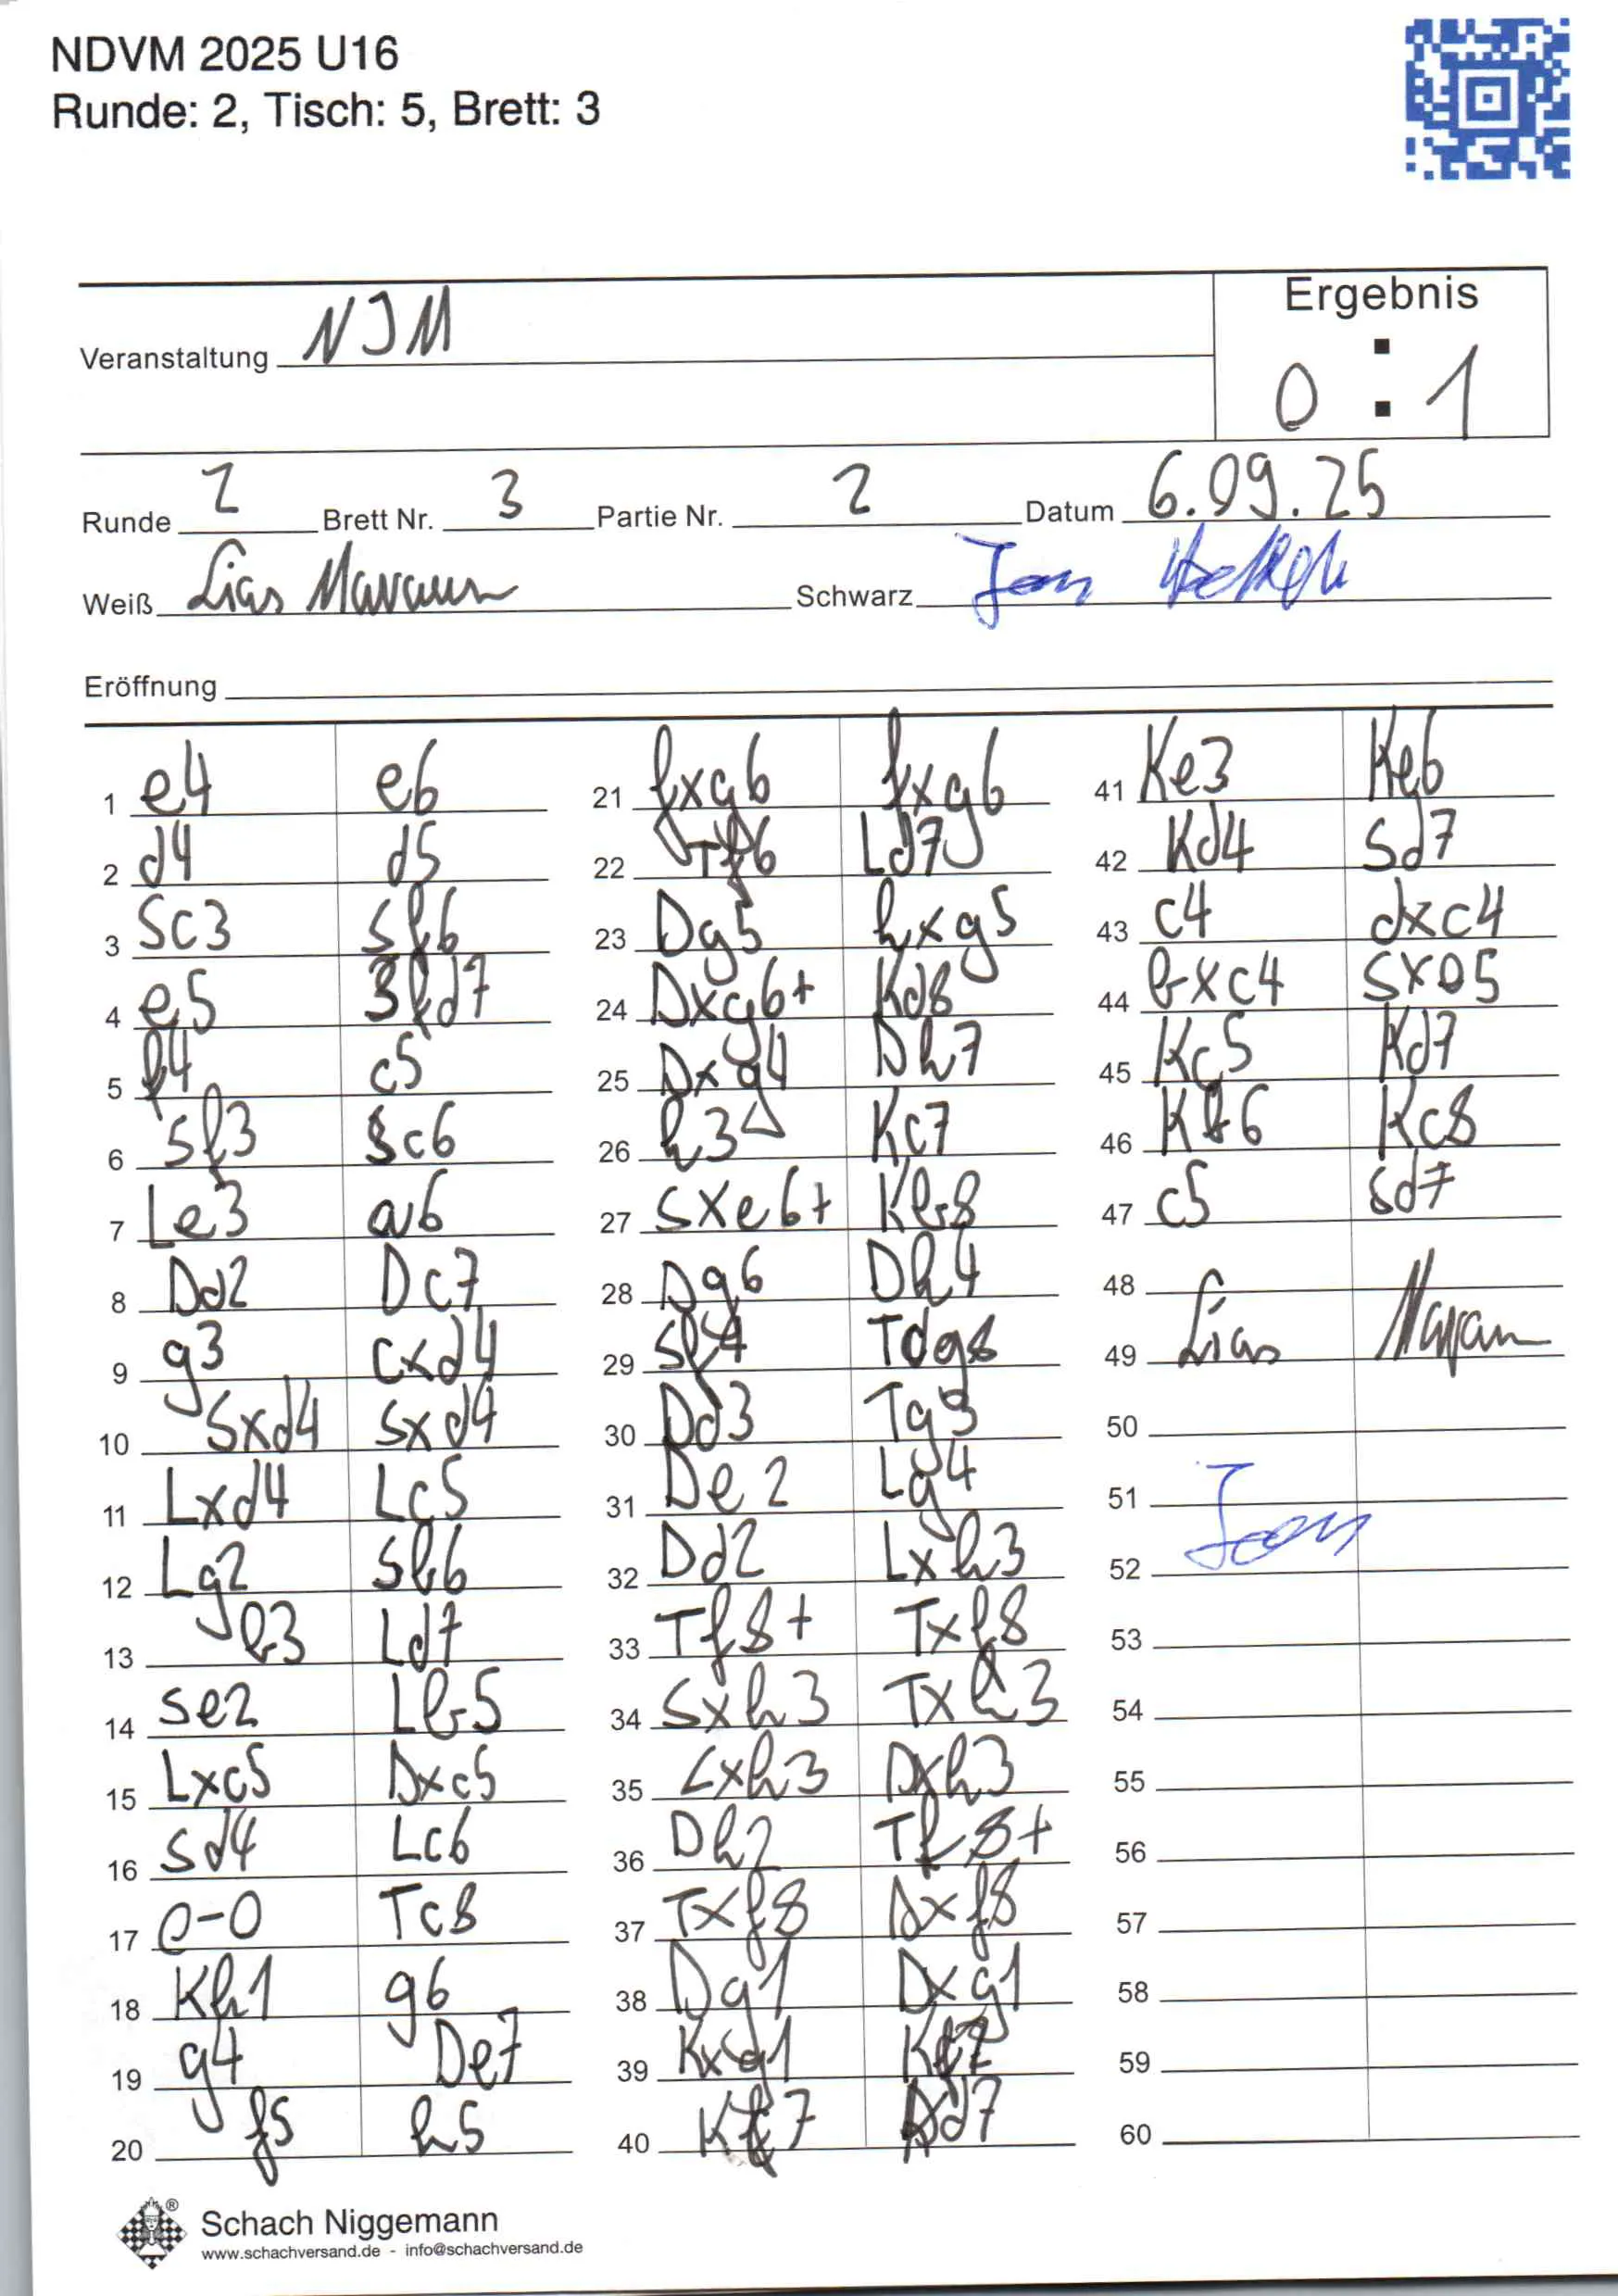 NDVM 2025 U16
Runde: 2, Tisch: 5, Brett: 3
Ergebnis
Veranstaltung NJM
0 : 1
Runde 2 Brett Nr. 3 Partie Nr. 2 Datum 6.09.25
Weiß Lias Schwarz
Eröffnung
1 e4 e6
2 d4 d5
3 Sc3 Sf6
4 e5 Sfd7
5 f4 c5
6 Sf3 Sc6
7 Le3 a6
8 Dd2 Dc7
9 g3 cxd4
10 Sxd4 Sxd4
11 Lxd4 Lc5
12 Lg2 Sb6
13 b3 Ld7
14 Se2 Lb5
15 Lxc5 Dxc5
16 Sd4 Lc6
17 0-0 Tc8
18 Kh1 g6
19 g4 De7
20 f5 h5
21 fxg6 fxg6
22 Tf6 Ld7
23 Dg5 hxg5
24 Dxg6+ Kd8
25 Dxg4 Dh7
26 h3 Kc7
27 Sxe6+ Kb8
28 Dg6 Dh4
29 Sf4 Tdg8
30 Dd3 Tg3
31 De2 Lg4
32 Dd2 Lxh3
33 Tf8+ Txf8
34 Sxh3 Txh3
35 Lxh3 Dxh3
36 Dh2 Tf8+
37 Txf8 Dxf8
38 Dg1 Dxg1
39 Kxg1
40 Kf7 d7
41 Ke3 Ke6
42 Kd4 Sd7
43 c4 dxc4
44 bxc4 Sxe5
45 Kc5 Kd7
46 Kb6 Kc8
47 c5 Sd7
48
49 Lias
50
51
52
53
54
55
56
57
58
59
60
Schach Niggemann
www.schachversand.de - info@schachversand.de